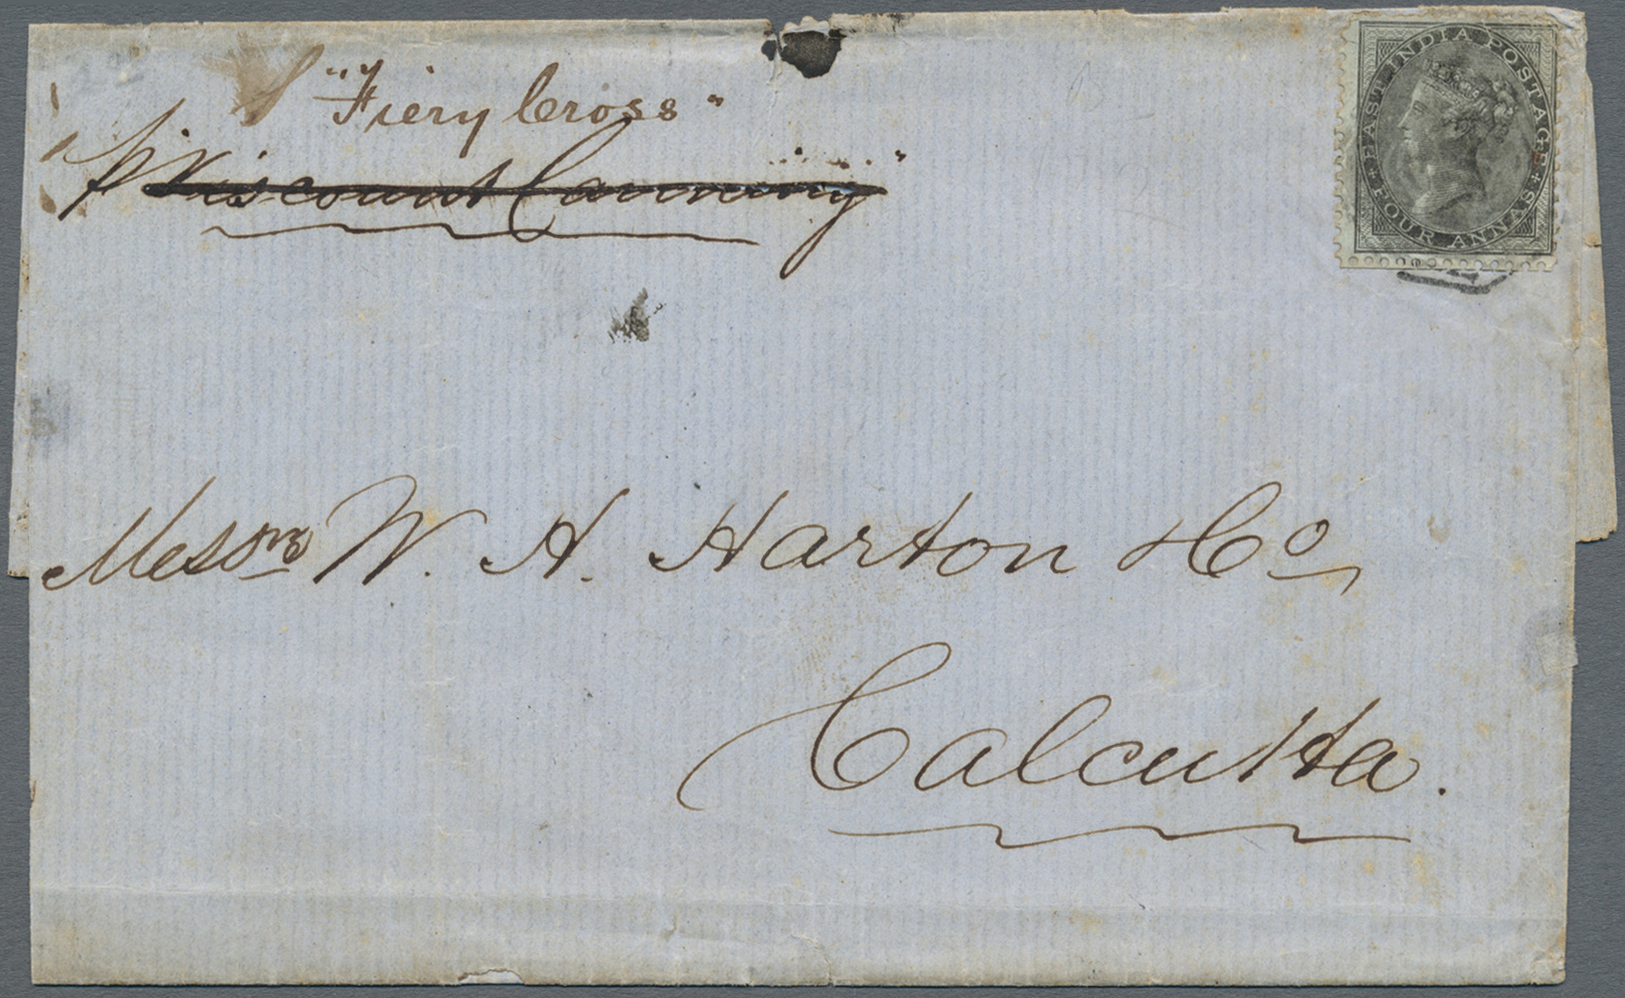 p "Fiery Cross"
p Viscount Canning"
EAST INDIA POSTAGE
FOUR ANNAS
Messrs W. H. Harton & Co
Calcutta.